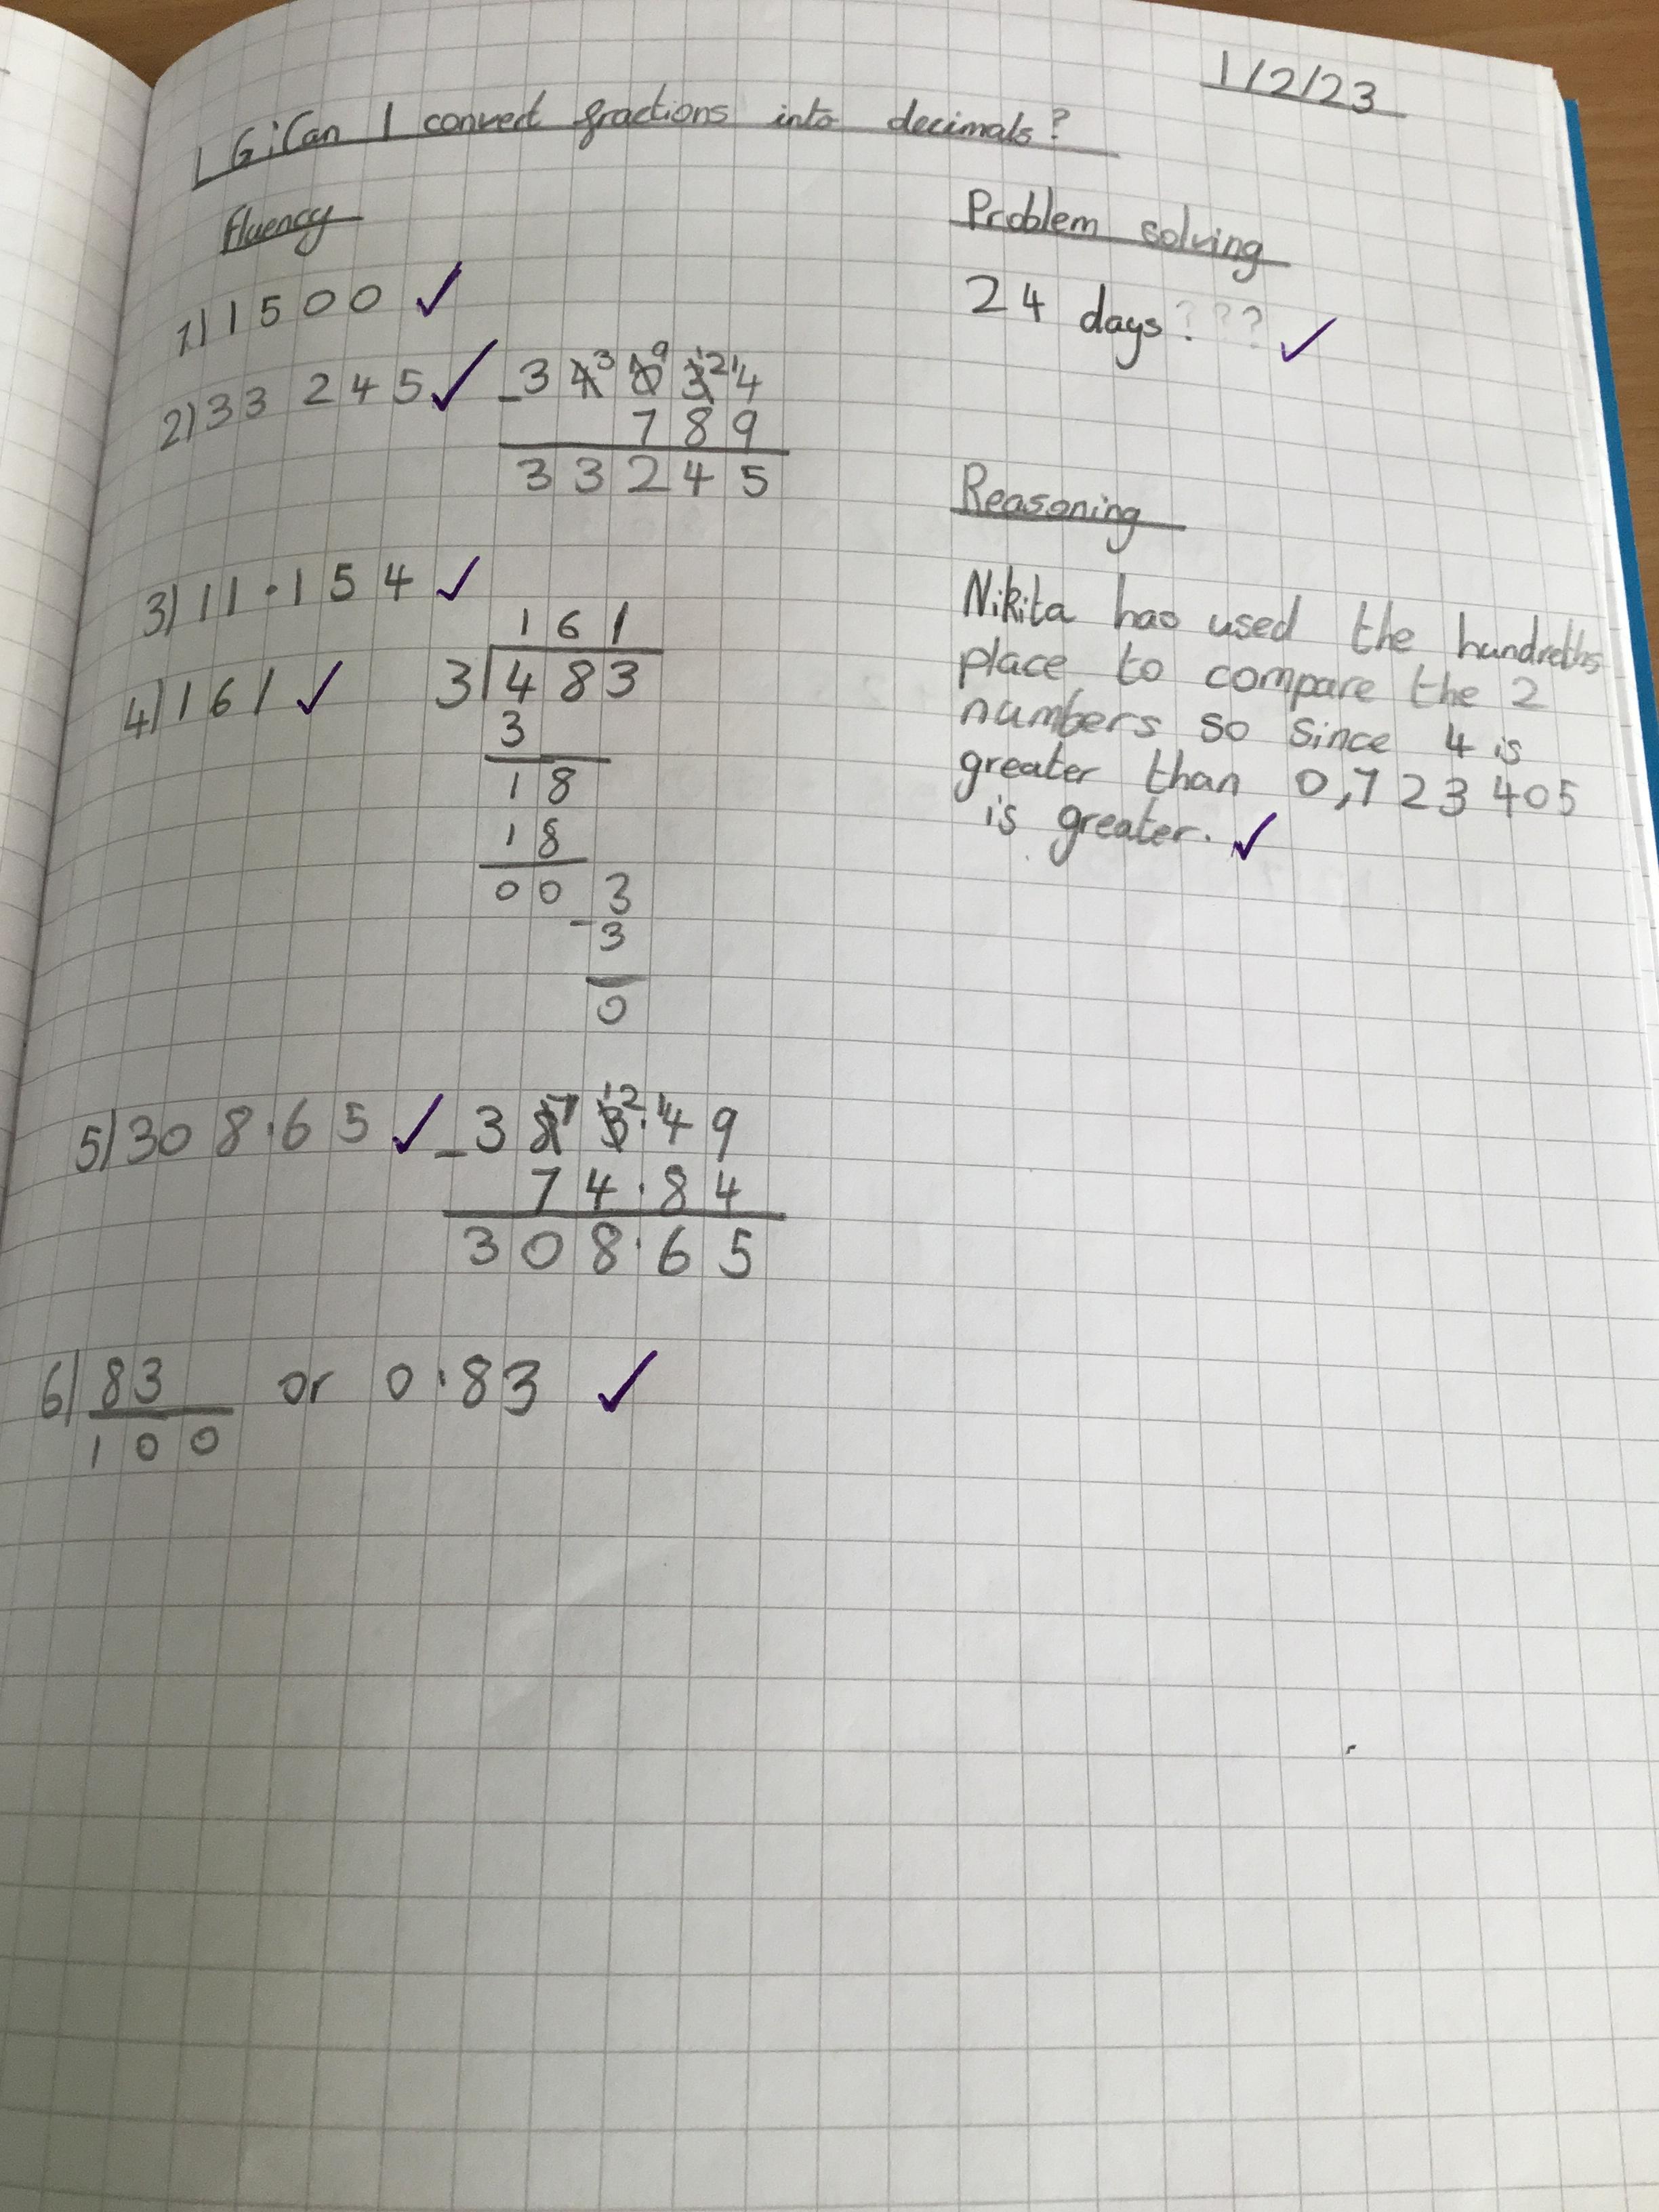 1/2/23
LG: Can I convert fractions into decimals?
Fluency
1) 1500 ✓
2) 33 245 ✓
- 34034
789
33245
3) 11.154 ✓
4) 161 ✓
161
3 483
3
18
18
00 3
- 3
0
5) 308.65 ✓
- 383.49
74.84
308.65
6) 83
100
or 0.83 ✓
Problem solving
24 days??? ✓
Reasoning
Nikita has used the hundreths
place to compare the 2
numbers so since 4 is
greater than 0,723405
is greater. ✓